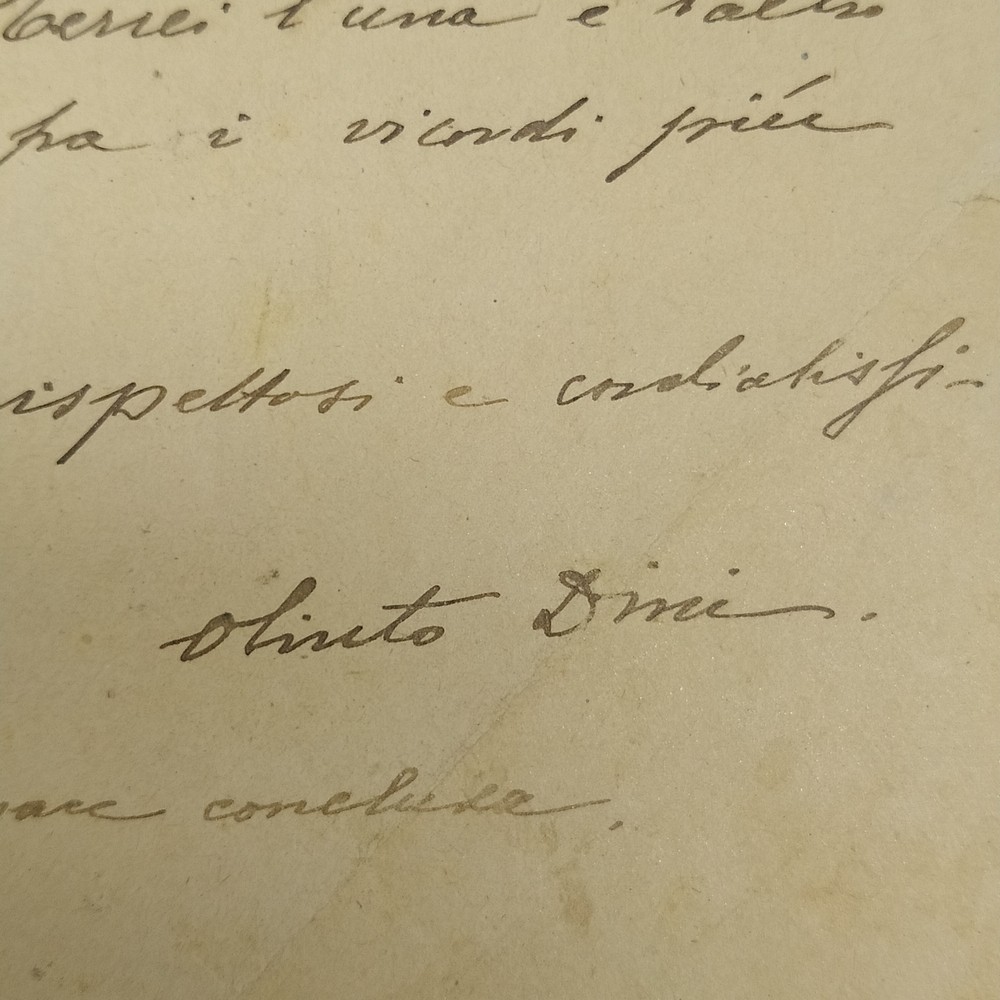 Terrei l'una e l'altro
fra i ricordi più
ispettosi e cordialissi-
Olinto Dini.
pace conclusa.